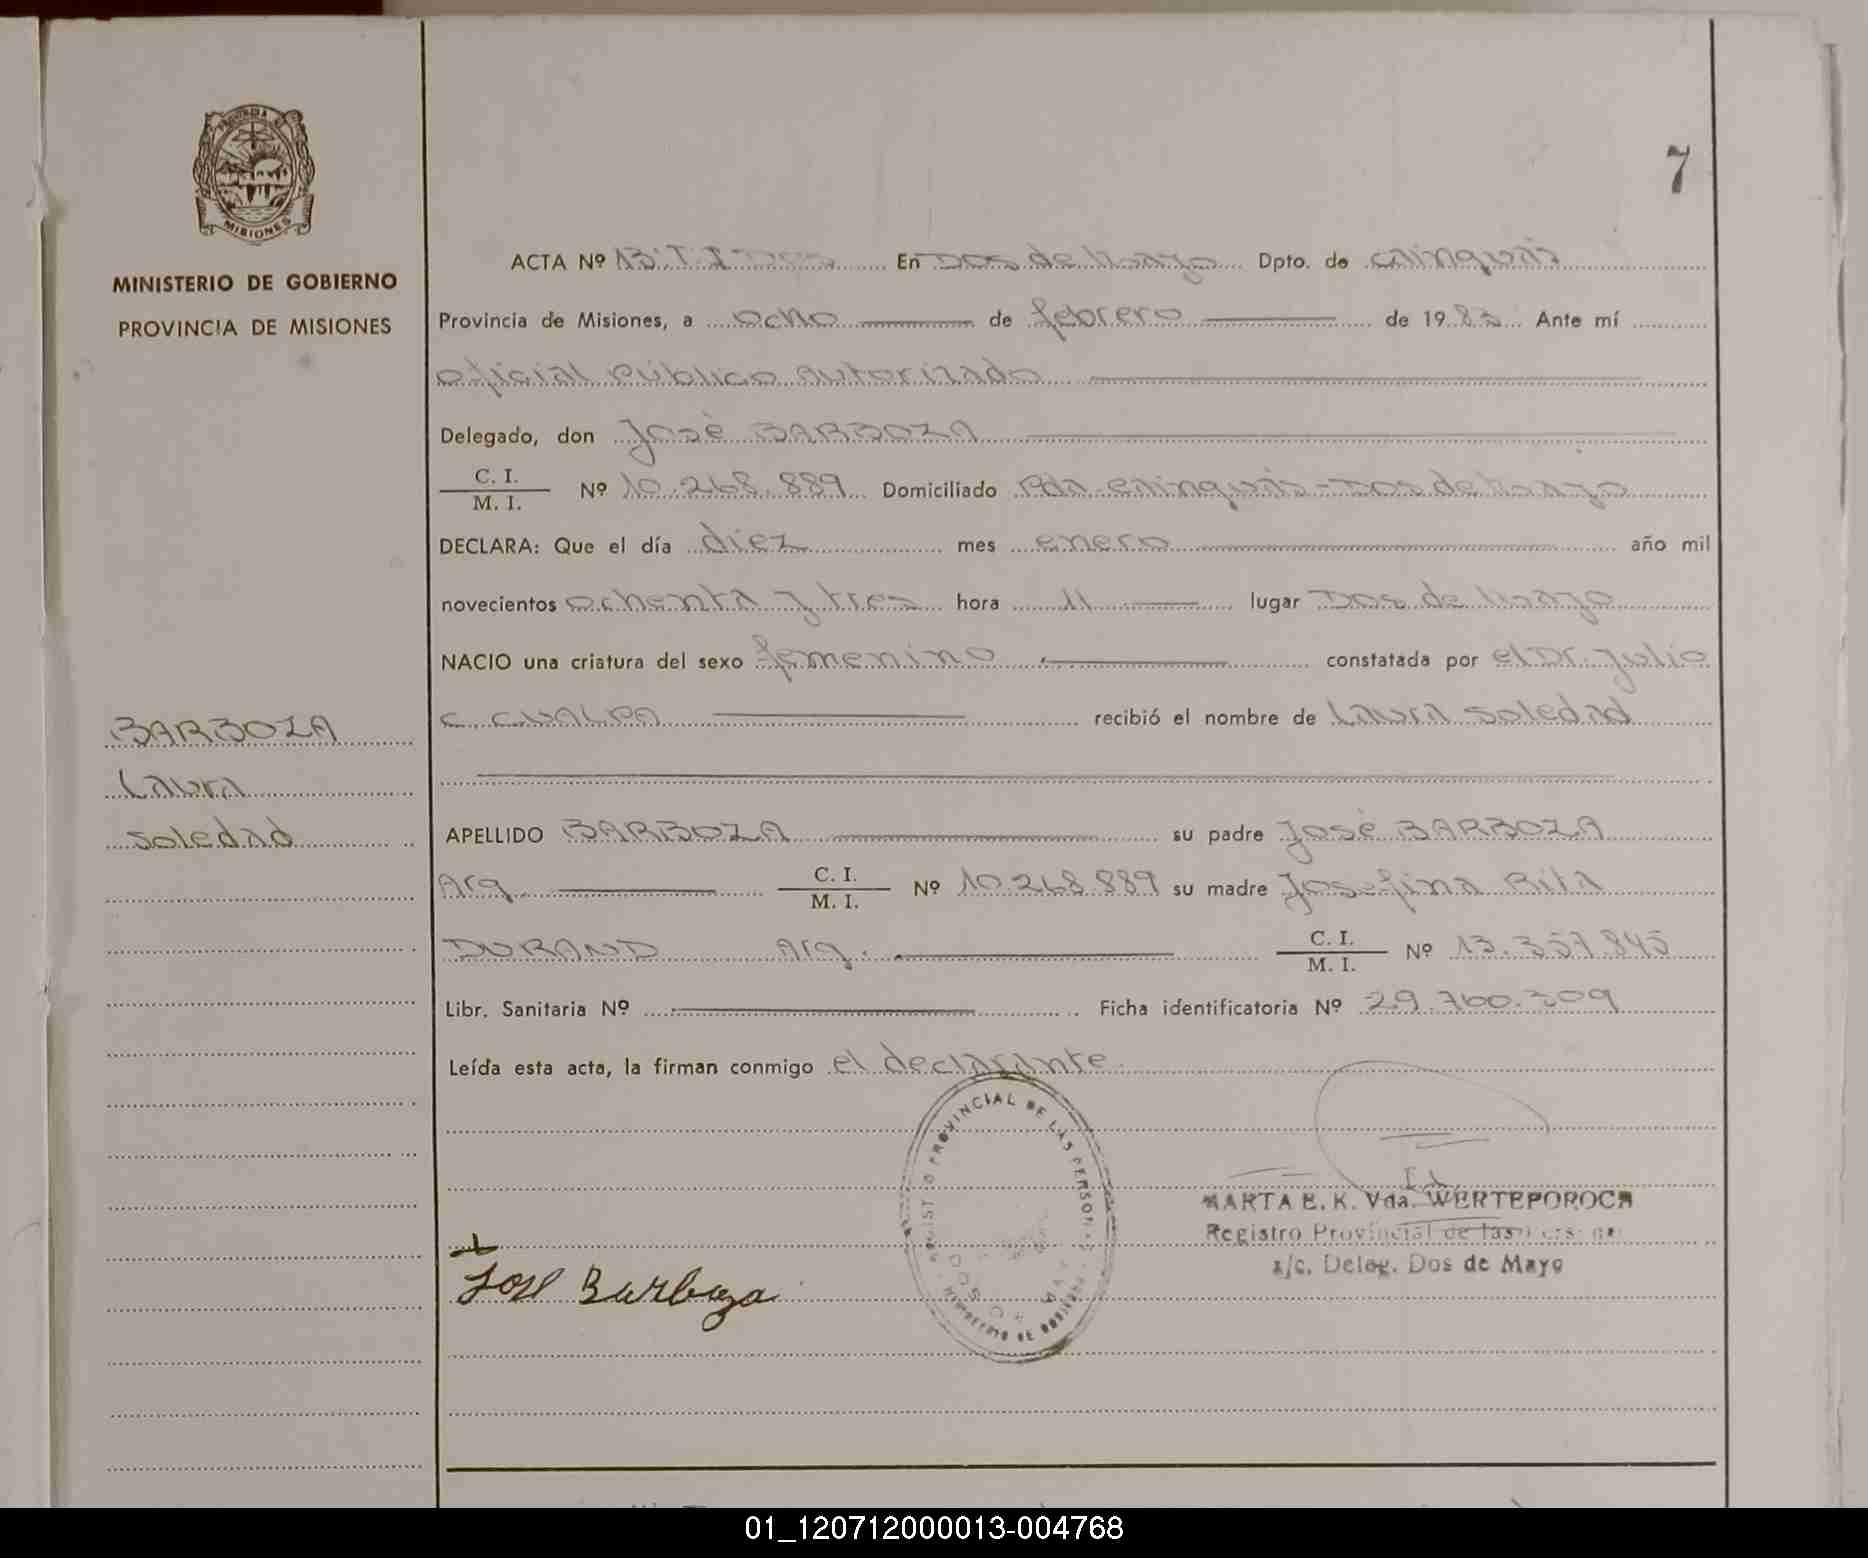 7
PROVINCIA DE
MISIONES
MINISTERIO DE GOBIERNO
PROVINCIA DE MISIONES
ACTA Nº 13 T. I En Dos de Mayo Dpto. de Cainguás
Provincia de Misiones, a ocho de febrero de 1983 Ante mí
oficial público autorizado
Delegado, don José BARBOZA
C. I.
M. I. Nº 10.268.889 Domiciliado Pda Cainguás - Dos de Mayo
DECLARA: Que el día diez mes enero año mil
novecientos ochenta y tres hora 11 lugar Dos de Mayo
NACIO una criatura del sexo femenino constatada por el Dr. Julio
C. CUALPA recibió el nombre de Laura Soledad
BARBOZA
Laura
Soledad
APELLIDO BARBOZA su padre José BARBOZA
Arg. C. I.
M. I. Nº 10.268.889 su madre Josefina Rita
DURAND Arg. C. I.
M. I. Nº 13.357.845
Libr. Sanitaria Nº Ficha identificatoria Nº 29.760.309
Leída esta acta, la firman conmigo el declarante.
PROVINCIAL DE LAS PERSONAS
MARTA E. K. Vda. WERTEPOROCH
Registro Provincial de las
a/c. Deleg. Dos de Mayo
José Barboza
01_120712000013-004768